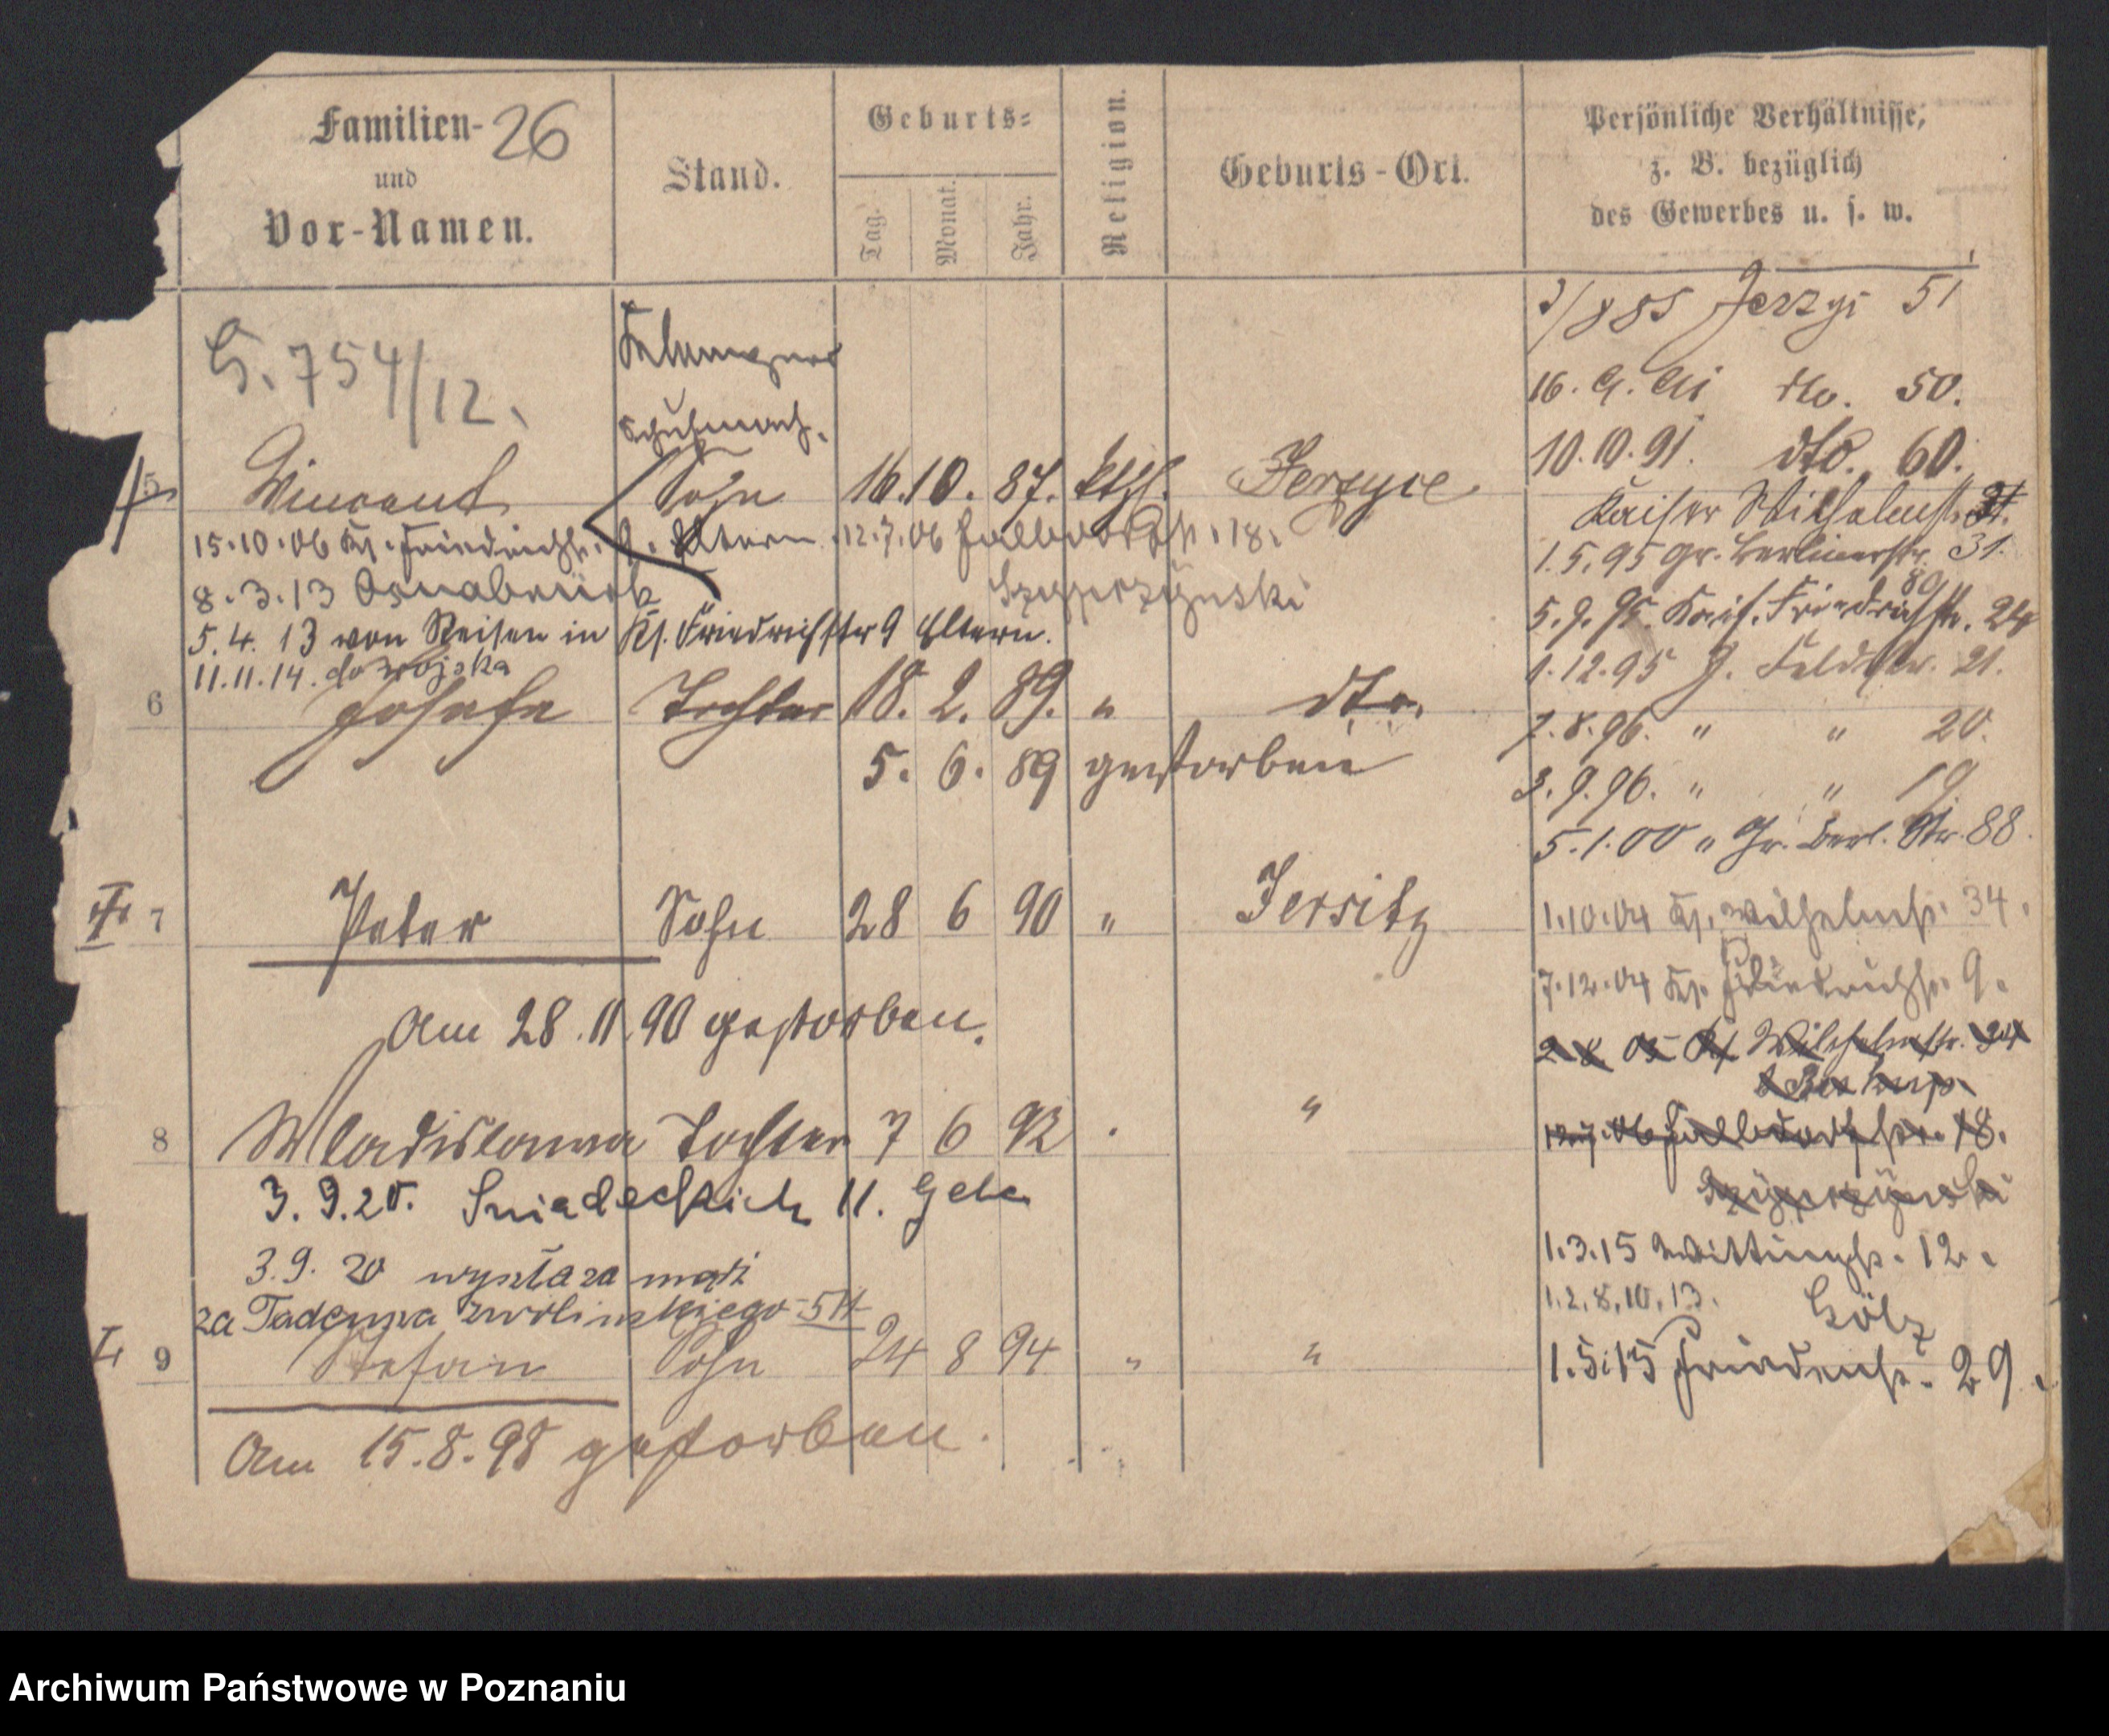 Familien- 26
und
Vor-Namen.
Stand.
Geburts-
Tag.
Monat.
Jahr.
Religion.
Geburts-Ort.
Persönliche Verhältnisse,
z. B. bezüglich
des Gewerbes u. s. w.
G. 754/12.
Schuhmach.
5 Vincent Sohn 16. 10. 87. kthl. Jerzyce
15.10.06 Kl. Friedrichstr. 9. Eltern. 12.7.06 18.
8.3.13 Osnabrück
5.4.13 von Reisen in Kl. Friedrichstr 9 Eltern.
11.11.14. do wojska
6 Josefa Tochter 18. 2. 89. " dto.
5. 6. 89 gestorben
7 Peter Sohn 28 6 90 " Jersitz
Am 28.11.90 gestorben.
8 Wladislawa Tochter 7 6 92 "
3.9.20. Sniadeckich 11.
3.9.20 wyszła za mąż
za Tadeusza Zwolinskiego
9 Stefan Sohn 24 8 94 " "
Am 15.8.98 gestorben.
/885 Jerzyi 51
16. dto. 50.
10.10.91. dto. 60.
Kaiser Wilhelmstr. 31.
1.5.95 Gr. Berlinerstr. 31.
5.9.95. Kais. Friedrichstr. 24
1.12.95 J. Feldstr. 21.
7.8.96. " " 20.
3.9.96. " " 19
5.1.00 " Gr. Berl. Str. 88.
1.10.04 Kl. Wilhelmstr. 34.
7.12.04 Kl. Friedrichstr. 9.
Kl Wilhelmstr. 34
12.7.06 18.
1.3.15 Wittingstr. 12.
1.2.8.10.13.
Gölz
1.5.15 Friedenstr. 29.
Archiwum Państwowe w Poznaniu